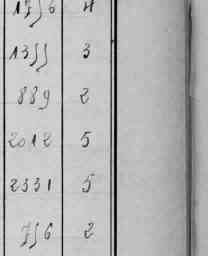 1756 4
1355 3
889 2
2012 5
2331 5
756 2